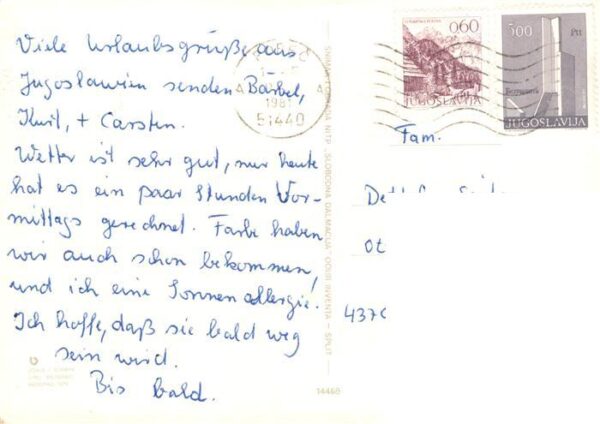 Viele Urlaubsgrüße aus
Jugoslawien senden Bärbel,
Kurt, + Carsten.
Wetter ist sehr gut, nur heute
hat es ein paar Stunden Vor-
mittags geregnet. Farbe haben
wir auch schon bekommen,
und ich eine Sonnenallergie!
Ich hoffe, daß sie bald weg
sein wird.
Bis bald.
1981
51440
0.60
JUGOSLAVIJA
5.00 Ptt
JUGOSLAVIJA
Fam.
Ot
437
"SLOBODNA DALMACIJA" OOUR INVENTA — SPLIT
14468